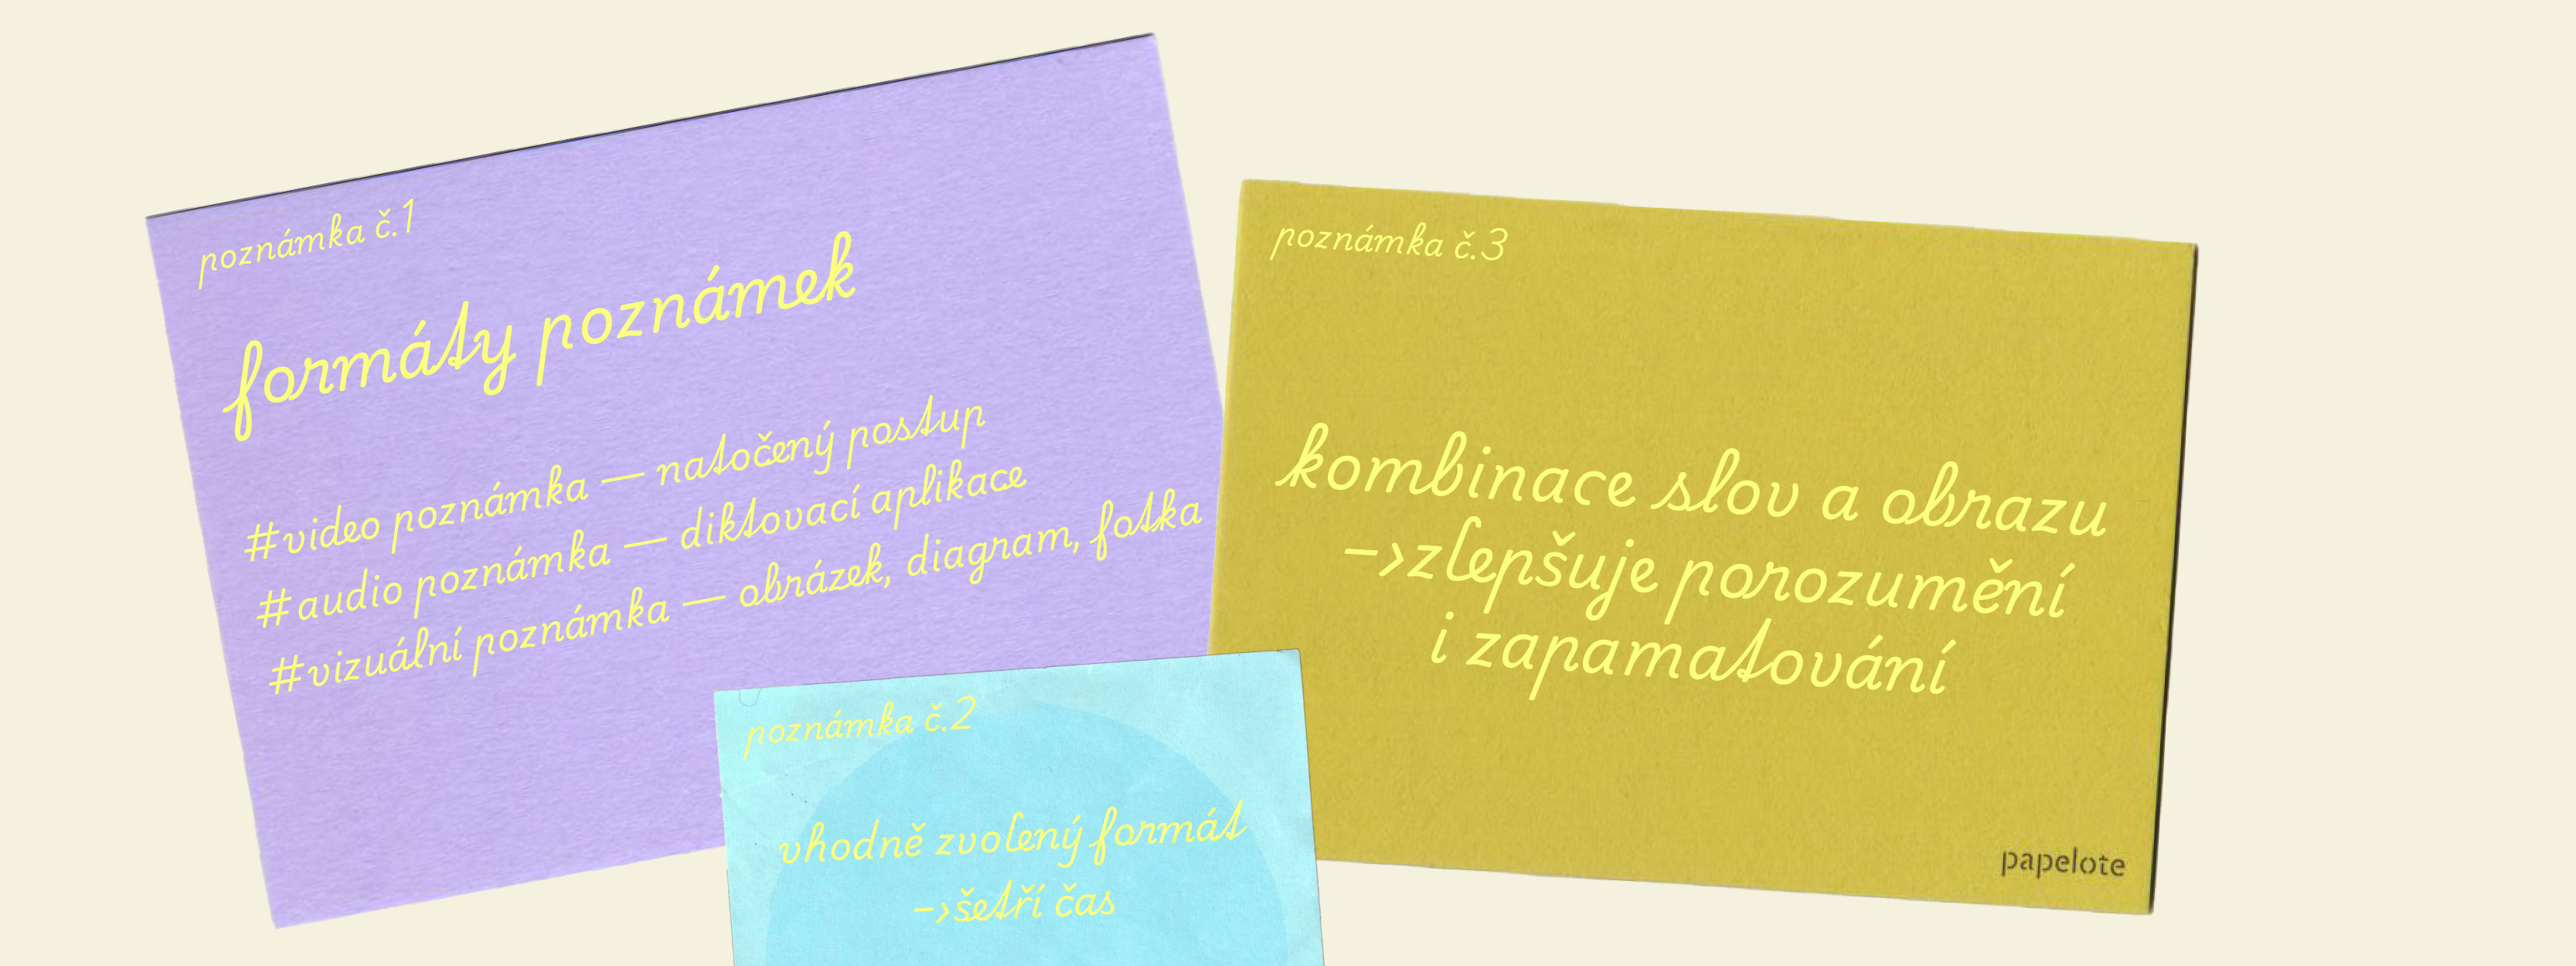 poznámka č.1
formáty poznámek
#video poznámka — natočený postup
#audio poznámka — diktovací aplikace
#vizuální poznámka — obrázek, diagram, fotka
poznámka č.2
vhodně zvolený formát
->šetří čas
poznámka č.3
kombinace slov a obrazu
->zlepšuje porozumění
i zapamatování
papelote